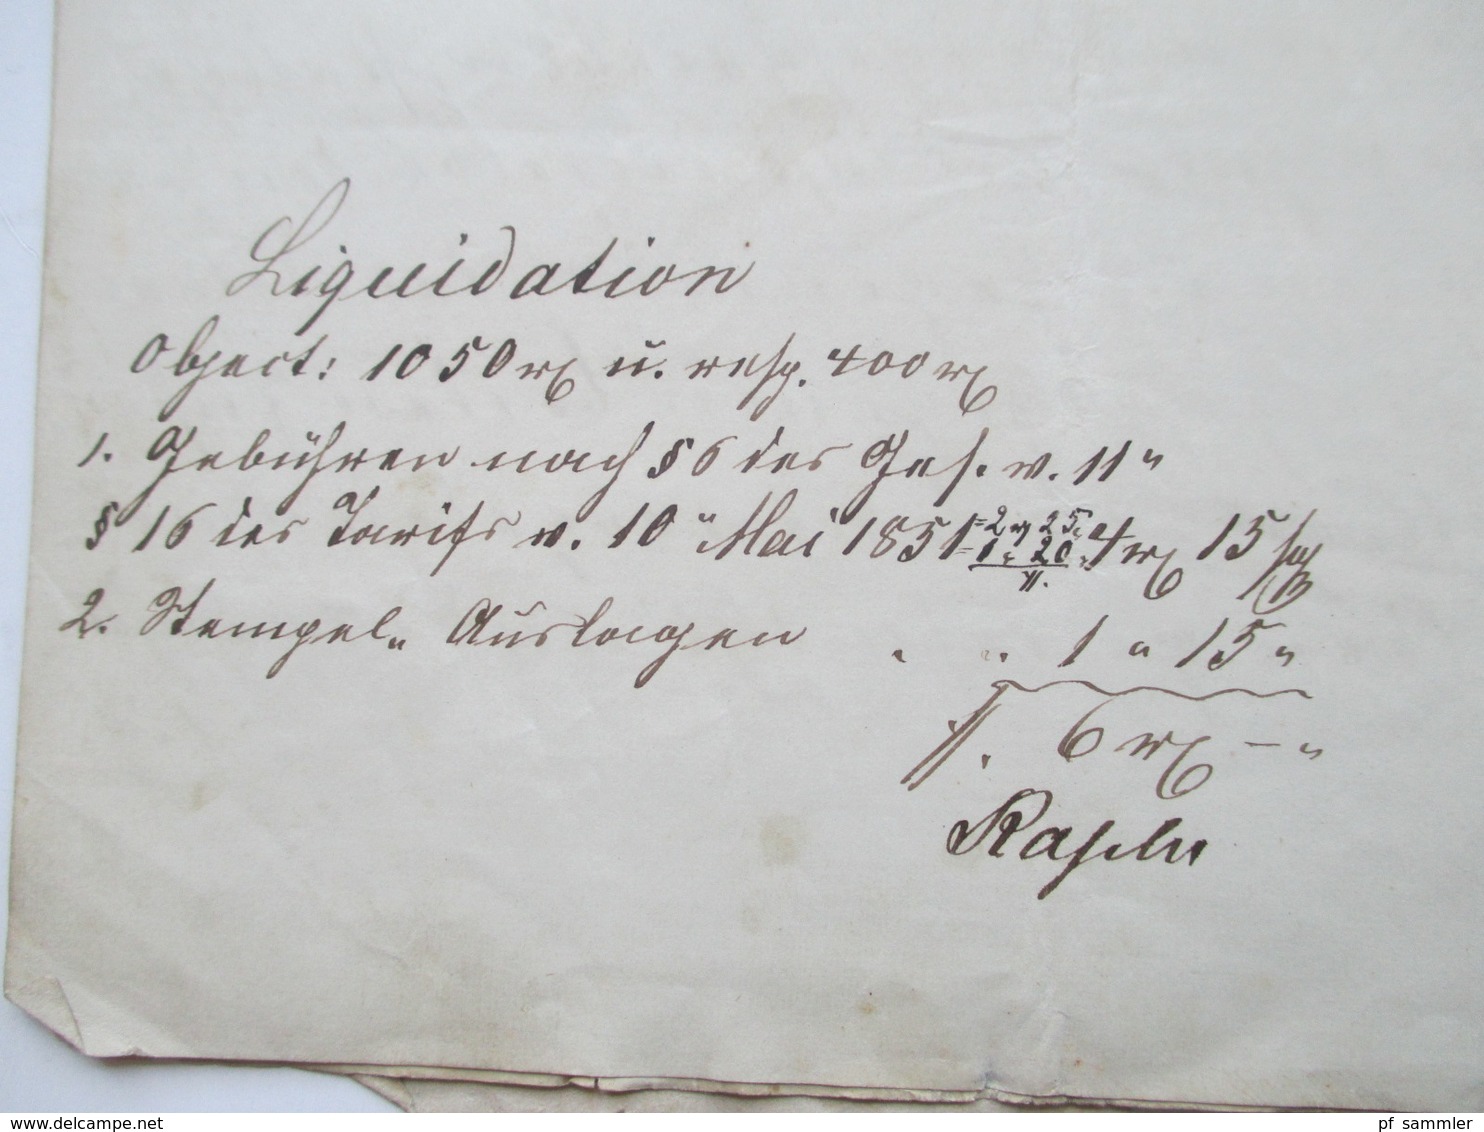 Liquidation
Object: 1050 rℓ u. resp. 400 rℓ
1. Gebühren nach § 6 des Ges. v. 11 "
§ 16 des Tarifs v. 10 " Mai 1851 = 2 rℓ 25. 4 rℓ 15 sgr
= 1 " 20 "
2. Stempel " Auslagen " " 1 " 15 "
S. 6 rℓ – "
www.delcampe.net
pf_sammler